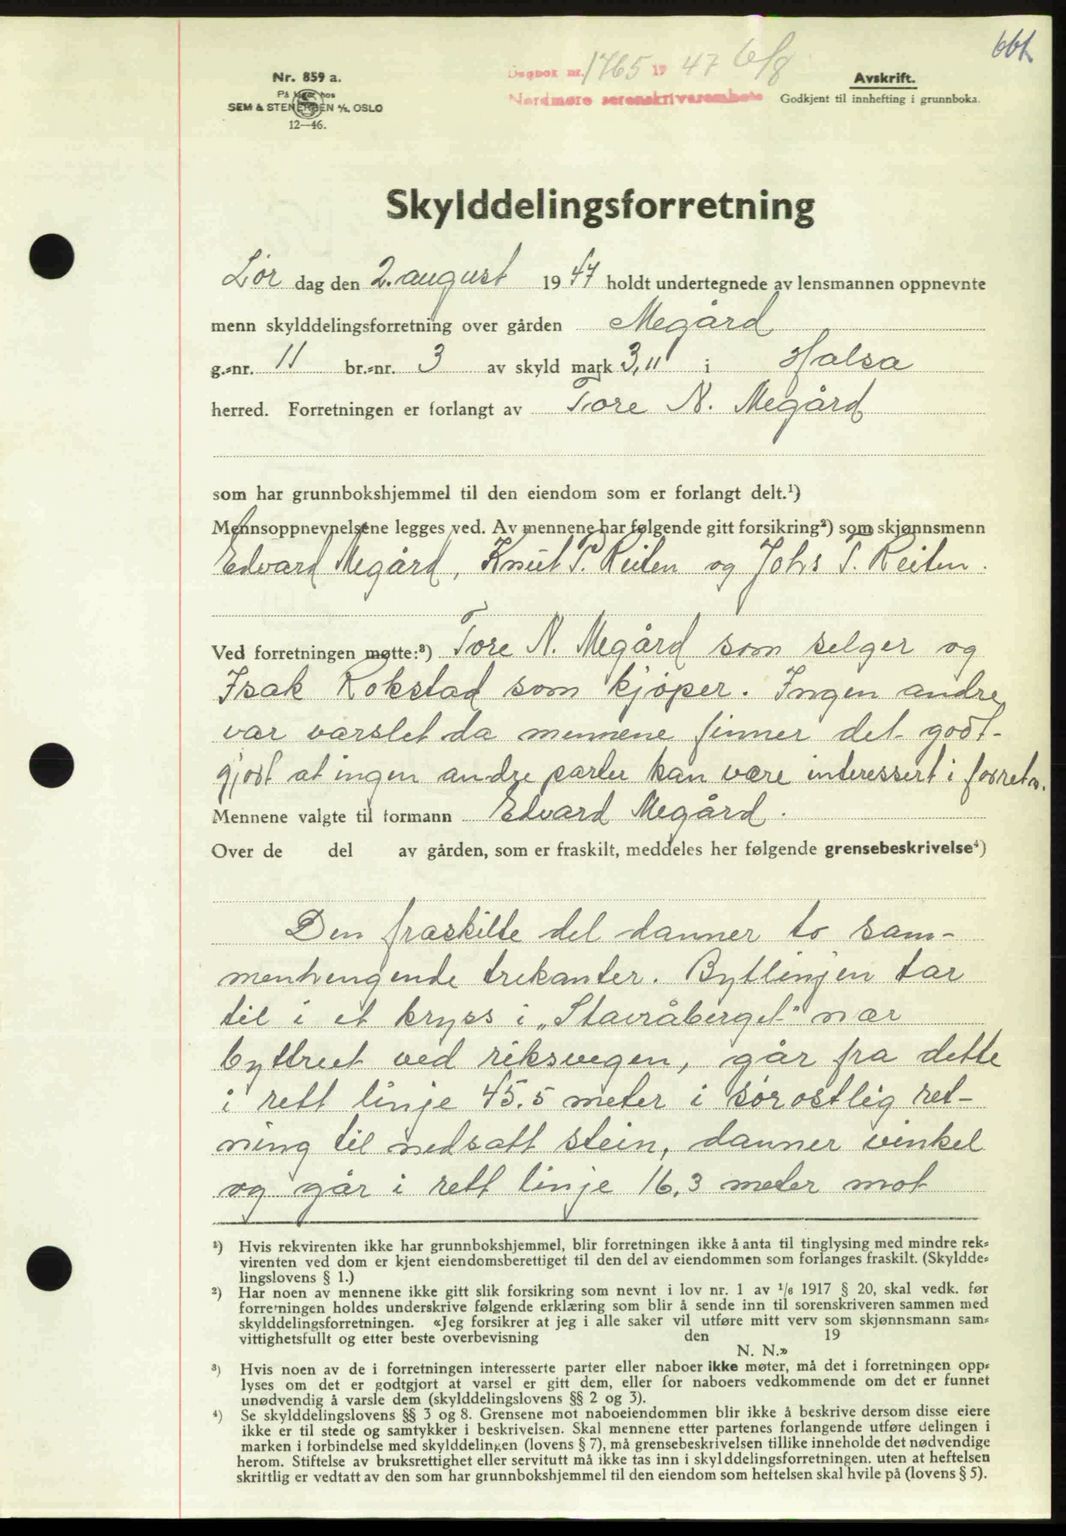 661
Dagbok nr. 1765 19 47 6/8
Nordmøre sorenskriverembete
Nr. 859 a.
På lager hos
SEM & STENERSEN A/S, OSLO
12—46.
Avskrift.
Godkjent til innhefting i grunnboka.
Skylddelingsforretning
Lør dag den 2. august 1947 holdt undertegnede av lensmannen oppnevnte
menn skylddelingsforretning over gården Megård
g.-nr. 11 br.-nr. 3 av skyld mark 3,11 i Halsa
herred. Forretningen er forlangt av Tore N. Megård
som har grunnbokshjemmel til den eiendom som er forlangt delt.¹)
Mennsoppnevnelsene legges ved. Av mennene har følgende gitt forsikring²) som skjønnsmenn
Edvard Megård, Knut P. Reiten og Johs T. Reiten.
Ved forretningen møtte:³) Tore N. Megård som selger og
Isak Rokstad som kjøper. Ingen andre
var varslet da mennene finner det godt-
gjort at ingen andre parter kan være interessert i forretn.
Mennene valgte til formann Edvard Megård.
Over de del av gården, som er fraskilt, meddeles her følgende grensebeskrivelse⁴)
Den fraskilte del danner to sam-
menhengende trekanter. Bytlinjen tar
til i et kryss i „Stavråberget" nær
byttreet ved riksvegen, går fra dette
i rett linje 45.5 meter i sørostlig ret-
ning til nedsatt stein, danner vinkel
og går i rett linje 16.3 meter mot
¹) Hvis rekvirenten ikke har grunnbokshjemmel, blir forretningen ikke å anta til tinglysing med mindre rek-
virenten ved dom er kjent eiendomsberettiget til den del av eiendommen som forlanges fraskilt. (Skyldde-
lingslovens § 1.)
²) Har noen av mennene ikke gitt slik forsikring som nevnt i lov nr. 1 av 1/6 1917 § 20, skal vedk. før
forretningen holdes underskrive følgende erklæring som blir å sende inn til sorenskriveren sammen med
skylddelingsforretningen. «Jeg forsikrer at jeg i alle saker vil utføre mitt verv som skjønnsmann sam-
vittighetsfullt og etter beste overbevisning den 19
N. N.»
³) Hvis noen av de i forretningen interesserte parter eller naboer ikke møter, må det i forretningen opp-
lyses om det er godtgjort at varsel er gitt dem, eller for naboers vedkommende om det er funnet
unødvendig å varsle dem (skylddelingslovens §§ 2 og 3).
⁴) Se skylddelingslovens §§ 3 og 8. Grensene mot naboeiendommen blir ikke å beskrive dersom disse eiere
ikke er til stede og samtykker i beskrivelsen. Skal mennene etter partenes forlangende utføre delingen i
marken i forbindelse med skylddelingen (lovens § 7), må grensebeskrivelsen tillike inneholde det nødvendige
herom. Stiftelse av bruksrettighet eller servitutt må ikke tas inn i skylddelingsforretningen, uten at heftelsen
skriftlig er vedtatt av den som har grunnbokshjemmel til den eiendom som heftelsen skal hvile på (lovens § 5).